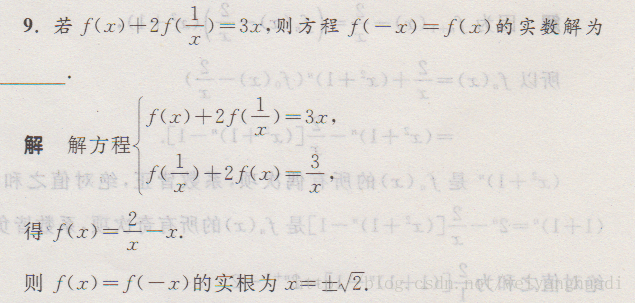 9. 若 f(x)+2f(1/x)=3x,则方程 f(-x)=f(x)的实数解为
________.
解 解方程{f(x)+2f(1/x)=3x,
f(1/x)+2f(x)=3/x,
得 f(x)=2/x-x.
则 f(x)=f(-x)的实根为 x=±√2.